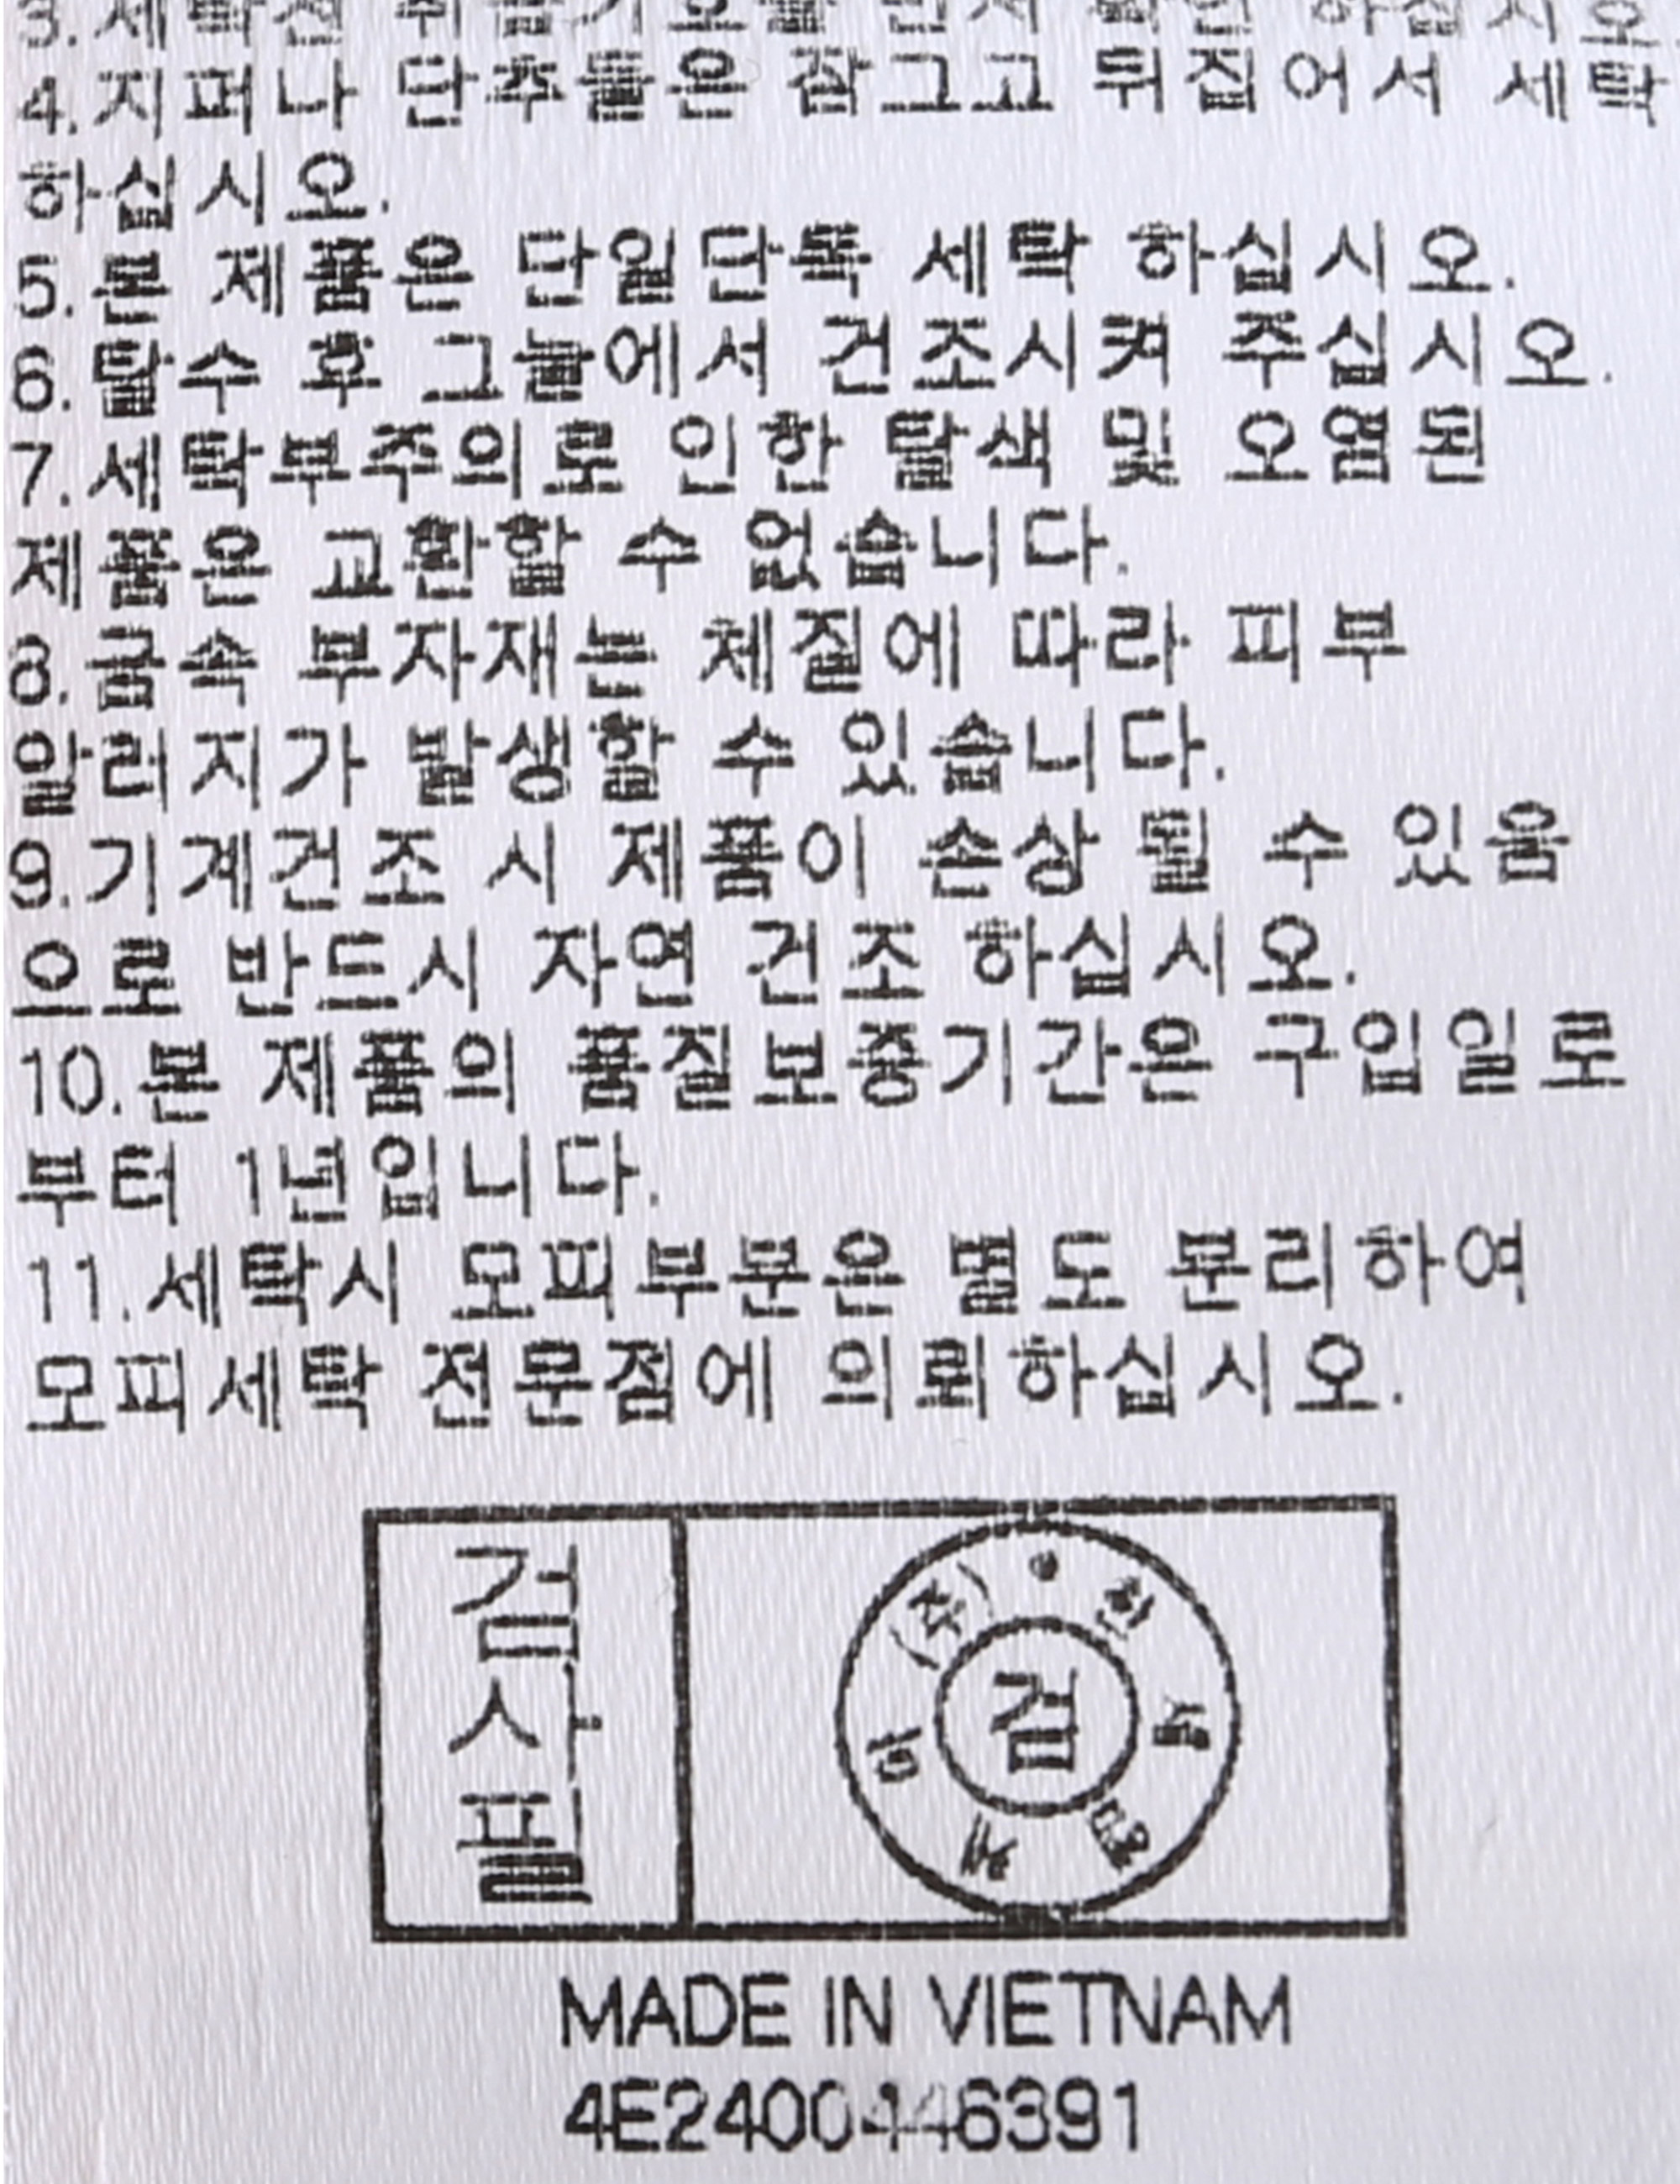 3.세탁전 취급기호를 먼저 확인 하십시오
4.지퍼나 단추들은 잠그고 뒤집어서 세탁
하십시오.
5.본 제품은 단일단독 세탁 하십시오.
6.탈수 후 그늘에서 건조시켜 주십시오.
7.세탁부주의로 인한 탈색 및 오염된
제품은 교환할 수 없습니다.
8.금속 부자재는 체질에 따라 피부
알러지가 발생할 수 있습니다.
9.기계건조 시 제품이 손상 될 수 있음
으로 반드시 자연 건조 하십시오.
10.본 제품의 품질보증기간은 구입일로
부터 1년입니다.
11.세탁시 모피부분은 별도 분리하여
모피세탁 전문점에 의뢰하십시오.
검
사
필
(주)
검
MADE IN VIETNAM